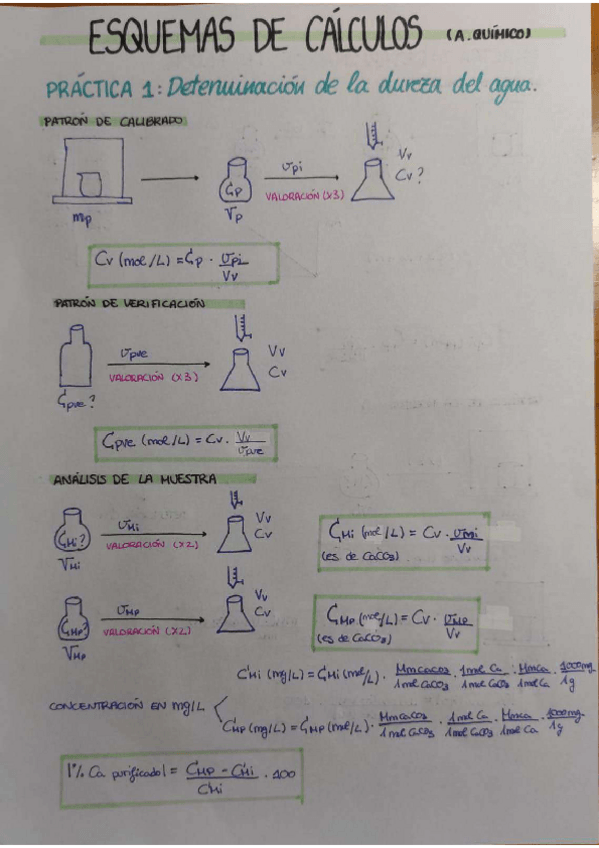 ESQUEMAS DE CÁLCULOS (A. QUÍMICO)
PRÁCTICA 1: Determinación de la dureza del agua.
PATRÓN DE CALIBRADO
mp
Cp
Vp
vpi
VALORACIÓN (x3)
Vv
Cv?
Cv (mol/L) = Cp · vpi / Vv
PATRÓN DE VERIFICACIÓN
Cpve?
vpve
VALORACIÓN (x3)
Vv
Cv
Cpve (mol/L) = Cv · Vv / vpve
ANÁLISIS DE LA MUESTRA
CMi?
VMi
vMi
VALORACIÓN (x2)
Vv
Cv
CMi (mol/L) = Cv · vMi / Vv
(es de CaCO3)
CMP?
VMP
vMP
VALORACIÓN (x2)
Vv
Cv
CMP (mol/L) = Cv · vMP / Vv
(es de CaCO3)
CONCENTRACIÓN EN mg/L
C'Mi (mg/L) = CMi (mol/L) · MmCaCO3 / 1mol CaCO3 · 1mol Ca / 1mol CaCO3 · MmCa / 1mol Ca · 1000mg / 1g
C'MP (mg/L) = CMP (mol/L) · MmCaCO3 / 1mol CaCO3 · 1mol Ca / 1mol CaCO3 · MmCa / 1mol Ca · 1000mg / 1g
|% Ca purificado| = C'MP - C'Mi / C'Mi · 100